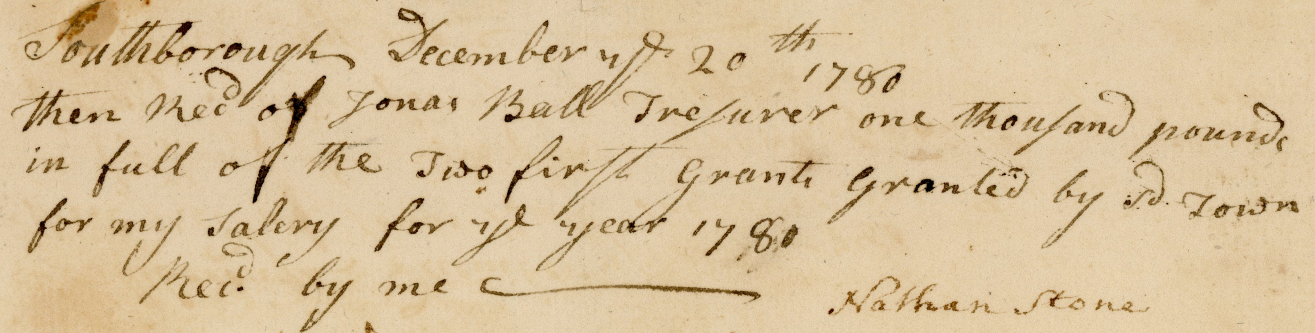 Southborough December ye 20th 1780
then Recd of Jonas Ball Tresurer one thousand pounds
in full of the Two first Grants Granted by sd Town
for my Salery for ye year 1780
Recd by me Nathan Stone